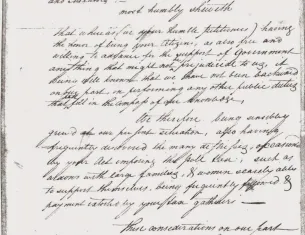 most humbly sheweth
that whereas (we your humble petitioners) having
the honor of being your Citizens, as also free and
willing to advance for the support of Government
anything that might not prejudice to us, &
being well known that we have not been backward
on our part, in performing any other public duties
that fell in the compass of our knowledge,
We therefore being sensibly
griev'd at our present situation, also having
frequently discovered the many
by your Act imposing the poll tax, such as
alarms with large families, & women scarcely able
to support themselves, being frequently &
payment extorted by your tax gatherers —
These considerations on our part